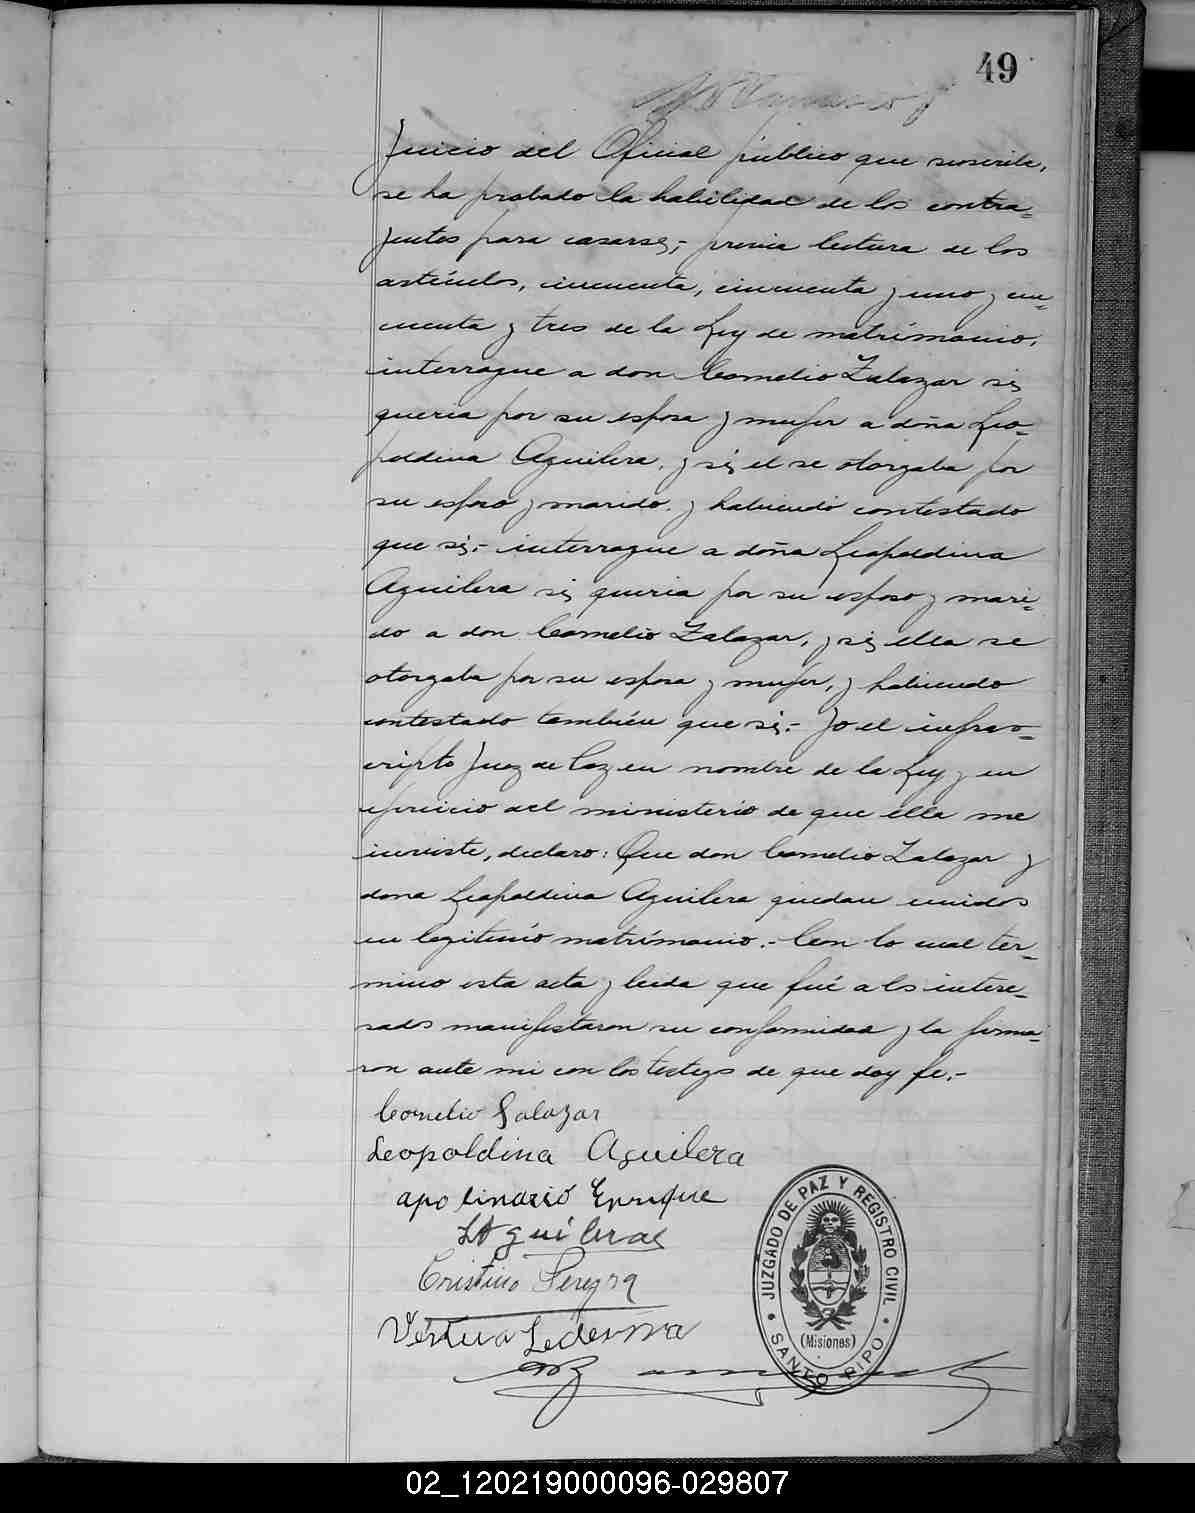 49
Juicio del Oficial público que suscribe,
se ha probado la habilidad de los contra=
yentes para casarse,- previa lectura de los
artículos, cincuenta, cincuenta y uno y cin=
cuenta y tres de la Ley de matrimonio,
interrogue a don Cornelio Zalazar si
queria por su esposa y mujer a doña Leo=
poldina Aguilera, y si el se otorgaba por
su esposo y marido, y habiendo contestado
que si,- interrogue a doña Leopoldina
Aguilera si queria por su esposo y mari=
do a don Cornelio Zalazar, y si ella se
otorgaba por su esposa y mujer, y habiendo
contestado también que si.- Yo el infras=
cripto Juez de Paz en nombre de la Ley y en
ejercicio del ministerio de que ella me
inviste, declaro: Que don Cornelio Zalazar y
dona Leopoldina Aguilera quedan unidos
en legitimo matrimonio.- Con lo cual ter=
mino esta acta y leida que fué a ls intere=
sados manifestaron su conformidad y la firma=
ron ante mi con los testigs de que doy fe.-
Cornelio Salazar
Leopoldina Aguilera
apolinario Enrique
LAguilera
Cristino Pereyra
Ledesma
JUZGADO DE PAZ Y REGISTRO CIVIL
(Misiones)
SANTO PIPO
02_120219000096-029807